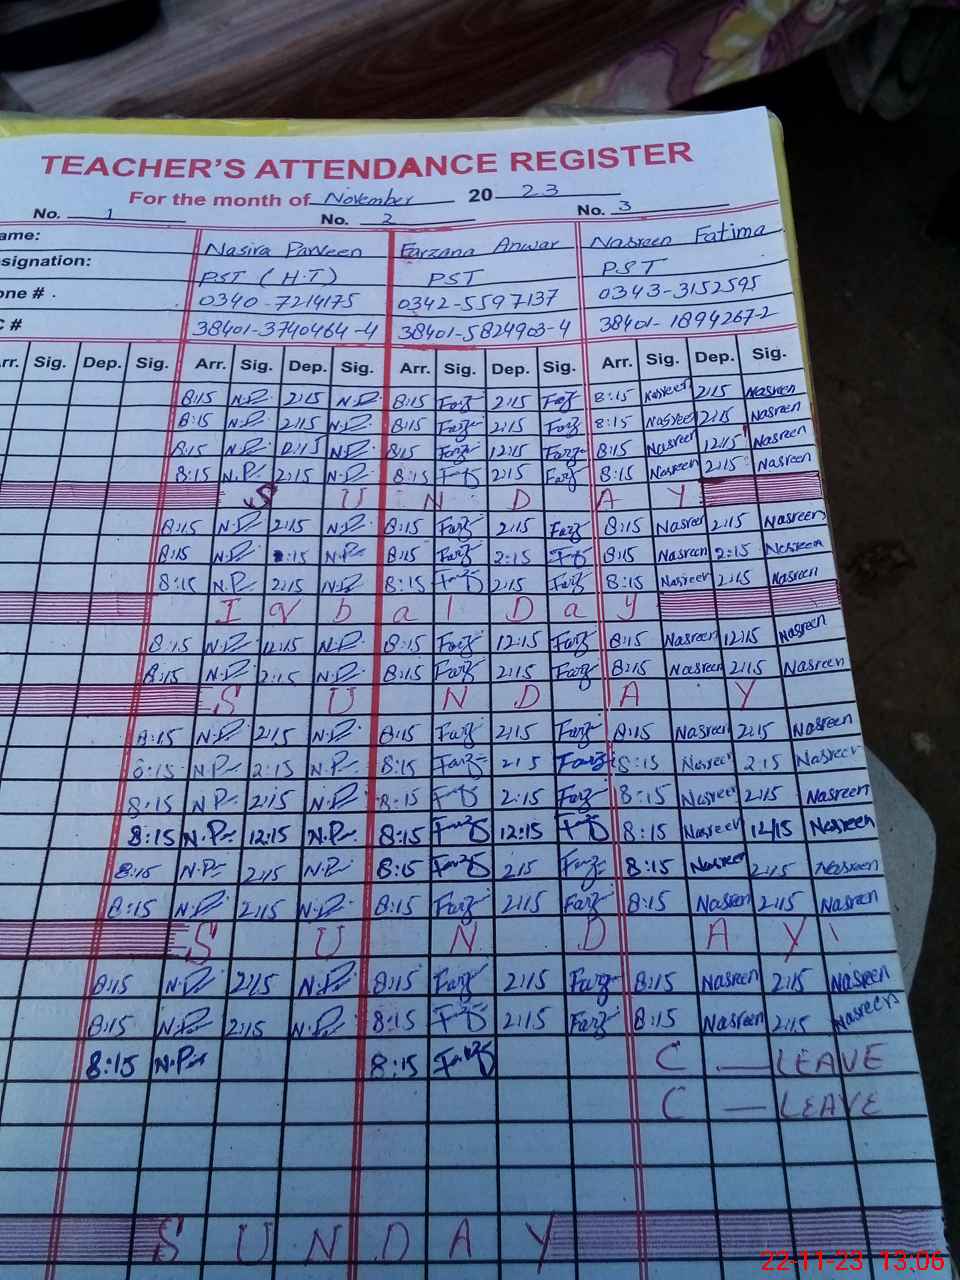 TEACHER'S ATTENDANCE REGISTER
For the month of November 20 23
No. 1 No. 2 No. 3
ame: Nasira Parveen Farzana Anwar Nasreen Fatima
signation: PST (H.T) PST PST
one # . 0340-7214175 0342-5597137 0343-3152595
C # 38401-3740464-4 38401-5824903-4 38401-1894267-2
rr. Sig. Dep. Sig. Arr. Sig. Dep. Sig. Arr. Sig. Dep. Sig. Arr. Sig. Dep. Sig.
8:15 N.P 2:15 N.P 8:15 Farz 2:15 Farz 8:15 Nasreen 2:15 Nasreen
8:15 N.P 2:15 N.P 8:15 Farz 2:15 Farz 8:15 Nasreen 2:15 Nasreen
8:15 N.P 12:15 N.P 8:15 Farz 12:15 Farz 8:15 Nasreen 12:15 Nasreen
8:15 N.P 2:15 N.P 8:15 Farz 2:15 Farz 8:15 Nasreen 2:15 Nasreen
SUNDAY
8:15 N.P 2:15 N.P 8:15 Farz 2:15 Farz 8:15 Nasreen 2:15 Nasreen
8:15 N.P 2:15 N.P 8:15 Farz 2:15 Farz 8:15 Nasreen 2:15 Nasreen
8:15 N.P 2:15 N.P 8:15 Farz 2:15 Farz 8:15 Nasreen 2:15 Nasreen
Iqbal Day
8:15 N.P 12:15 N.P 8:15 Farz 12:15 Farz 8:15 Nasreen 12:15 Nasreen
8:15 N.P 2:15 N.P 8:15 Farz 2:15 Farz 8:15 Nasreen 2:15 Nasreen
SUNDAY
8:15 N.P 2:15 N.P 8:15 Farz 2:15 Farz 8:15 Nasreen 2:15 Nasreen
8:15 N.P 2:15 N.P 8:15 Farz 2:15 Farz 8:15 Nasreen 2:15 Nasreen
8:15 N.P 2:15 N.P 8:15 Farz 2:15 Farz 8:15 Nasreen 2:15 Nasreen
8:15 N.P 12:15 N.P 8:15 Farz 12:15 Farz 8:15 Nasreen 12/15 Nasreen
8:15 N.P 2:15 N.P 8:15 Farz 2:15 Farz 8:15 Nasreen 2:15 Nasreen
8:15 N.P 2:15 N.P 8:15 Farz 2:15 Farz 8:15 Nasreen 2:15 Nasreen
SUNDAY
8:15 N.P 2:15 N.P 8:15 Farz 2:15 Farz 8:15 Nasreen 2:15 Nasreen
8:15 N.P 2:15 N.P 8:15 Farz 2:15 Farz 8:15 Nasreen 2:15 Nasreen
8:15 N.P 8:15 Farz C — LEAVE
C — LEAVE
SUNDAY
22-11-23 13:06